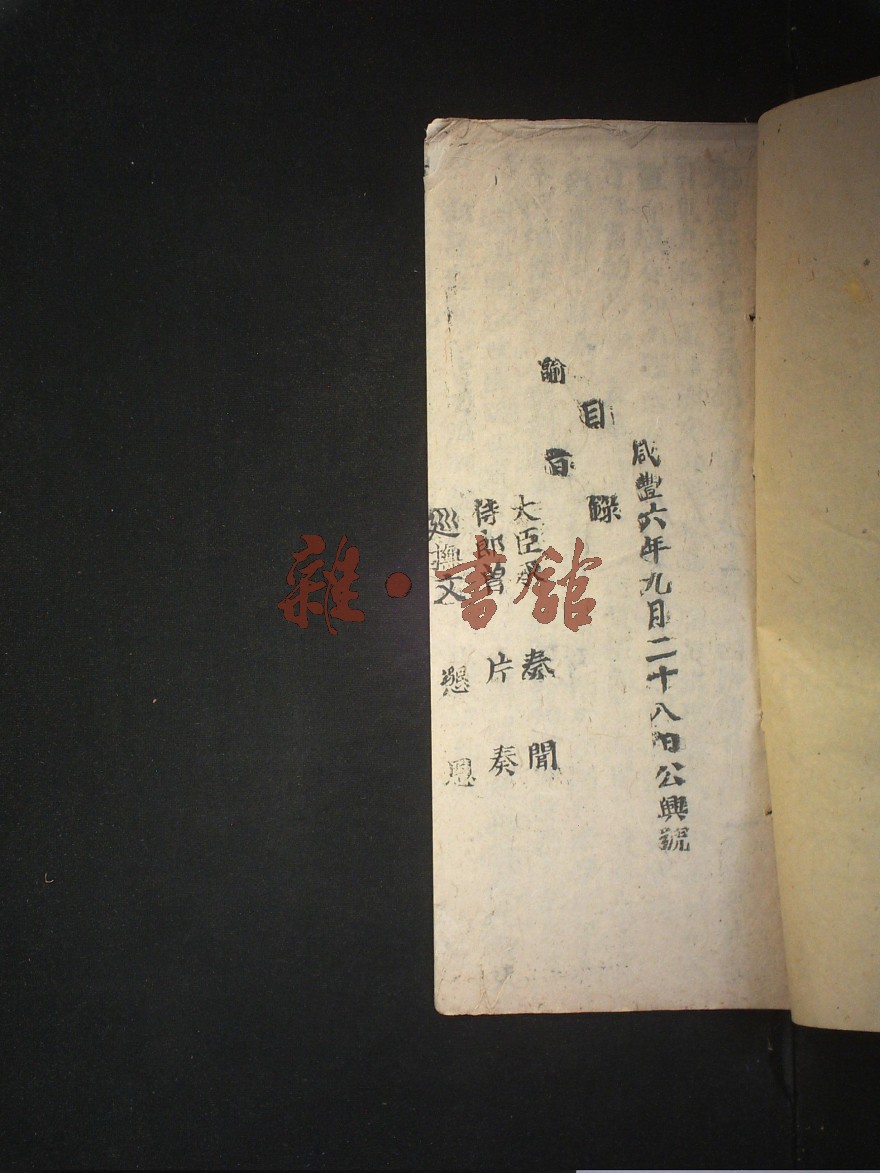 咸豐六年九月二十八日公興號
目錄
諭旨
大臣 奏聞
侍郎曾 片奏
巡撫文 懇恩
雜·書館